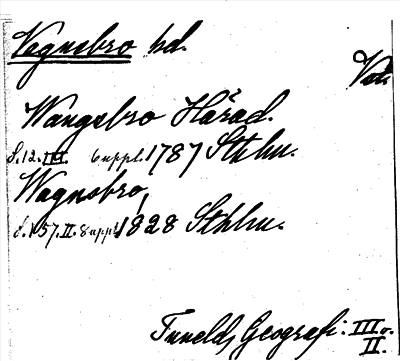 Vagnsbro hd.
Vstm.
Wångsbro Härad.
S.12.III. 6 uppl. 1787 Sthlm.
Wagnsbro,
S.157.II. 8 uppl. 1828 Sthlm.
Tunelds Geografi. III o.
II.